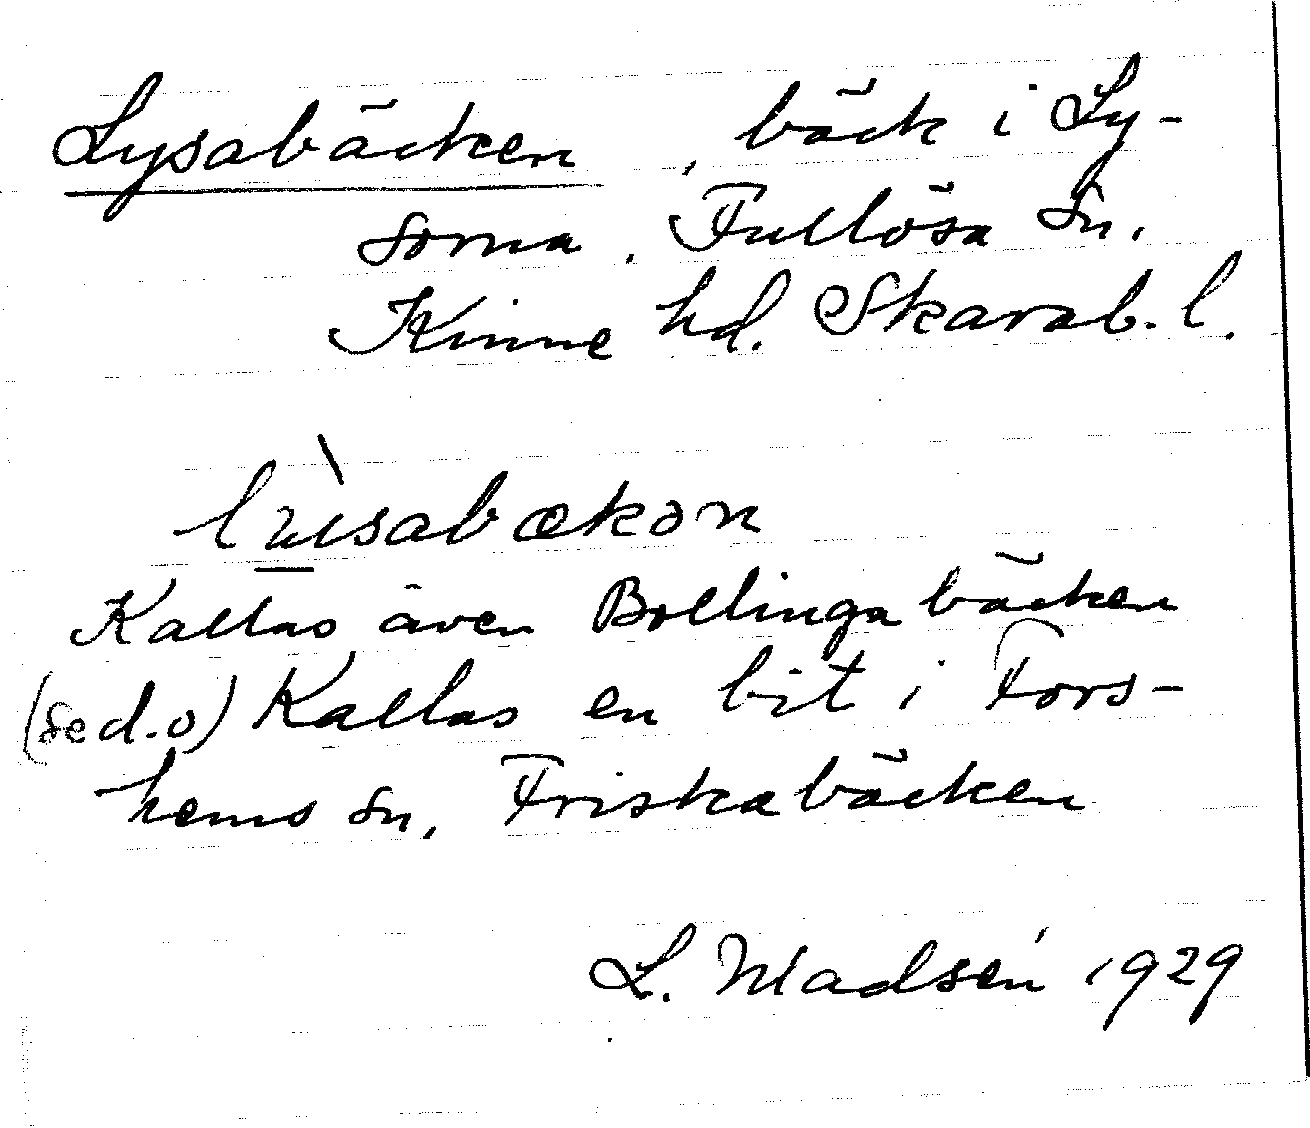 Lysabäcken, bäck i Ly-
sorna. Fullösa sn.
Kinne hd. Skarab. l.
lỳsabækən
Kallas även Bollingabäcken
(se d. o) Kallas en bit i Fors-
hems sn, Friskabäcken
L. Madsén 1929